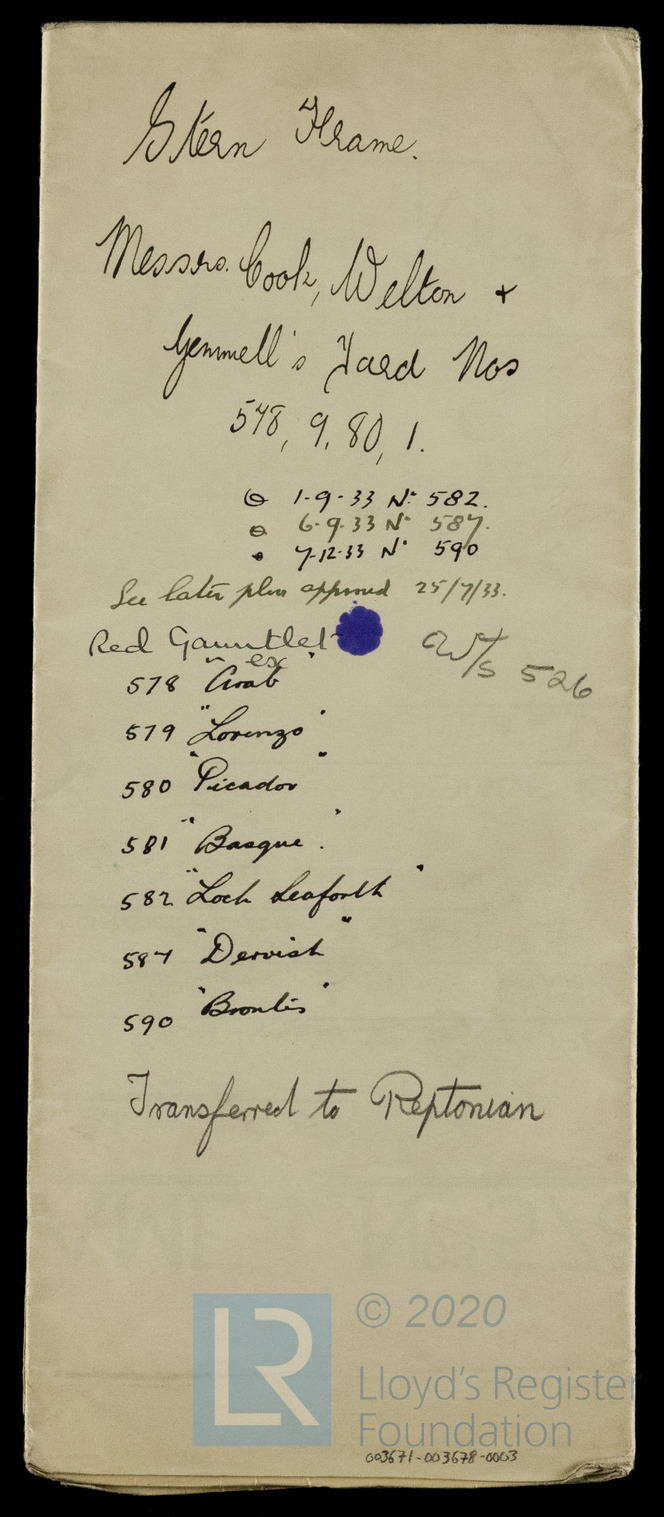 Stern Frame.
Messrs. Cook, Welton +
Gemmell's Yard Nos
578, 9, 80, 1.
⊖ 1-9-33 No 582.
⊖ 6-9-33 No 587.
• 7-12-33 No 590
See later plan approved 25/7/33.
Red Gauntlet
W/S 526
ex
578 "Arab"
579 "Lorenzo"
580 "Picador"
581 "Basque".
582 "Loch Seaforth"
587 "Dervish"
590 "Brontes"
Transferred to Reptonian
LR
© 2020
Lloyd's Register
Foundation
003671-003678-0003